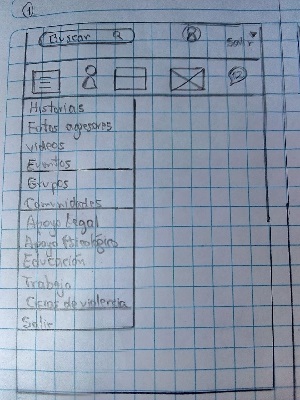 1
Buscar
Salir
Historias
Fotos agresores
videos
Eventos
Grupos
Comunidades
Apoyo Legal
Apoyo Psicológico
Educación
Trabajo
Ciclos de violencia
Salir